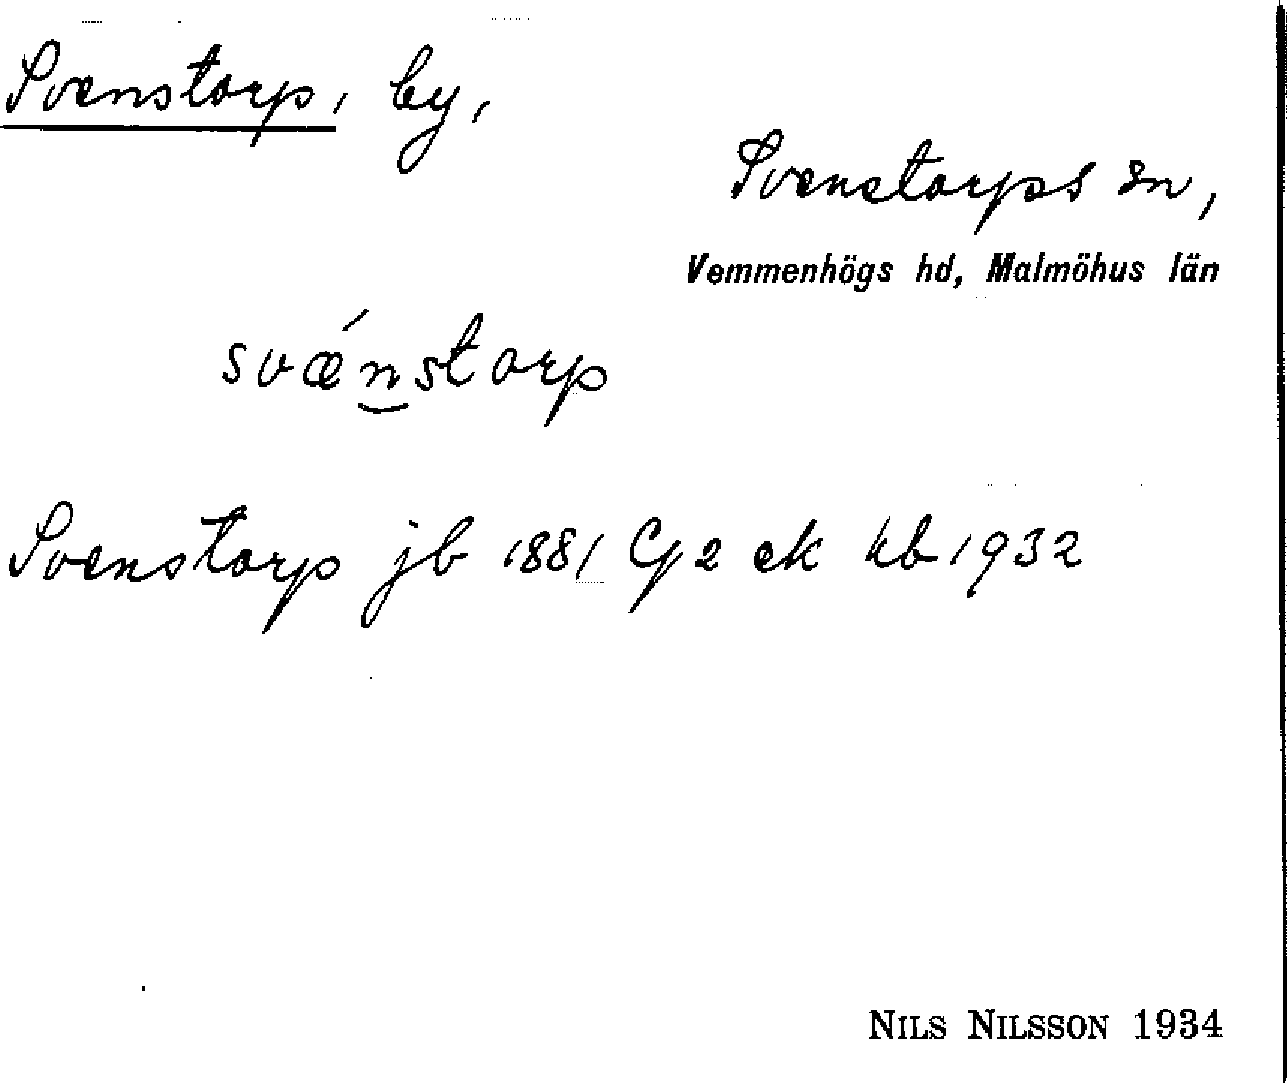 Svenstorp, by,
Svenstorps sn,
Vemmenhögs hd, Malmöhus län
svǽnstorp
Svenstorp jb 1881 Cy 2 ek kb 1932
NILS NILSSON 1934